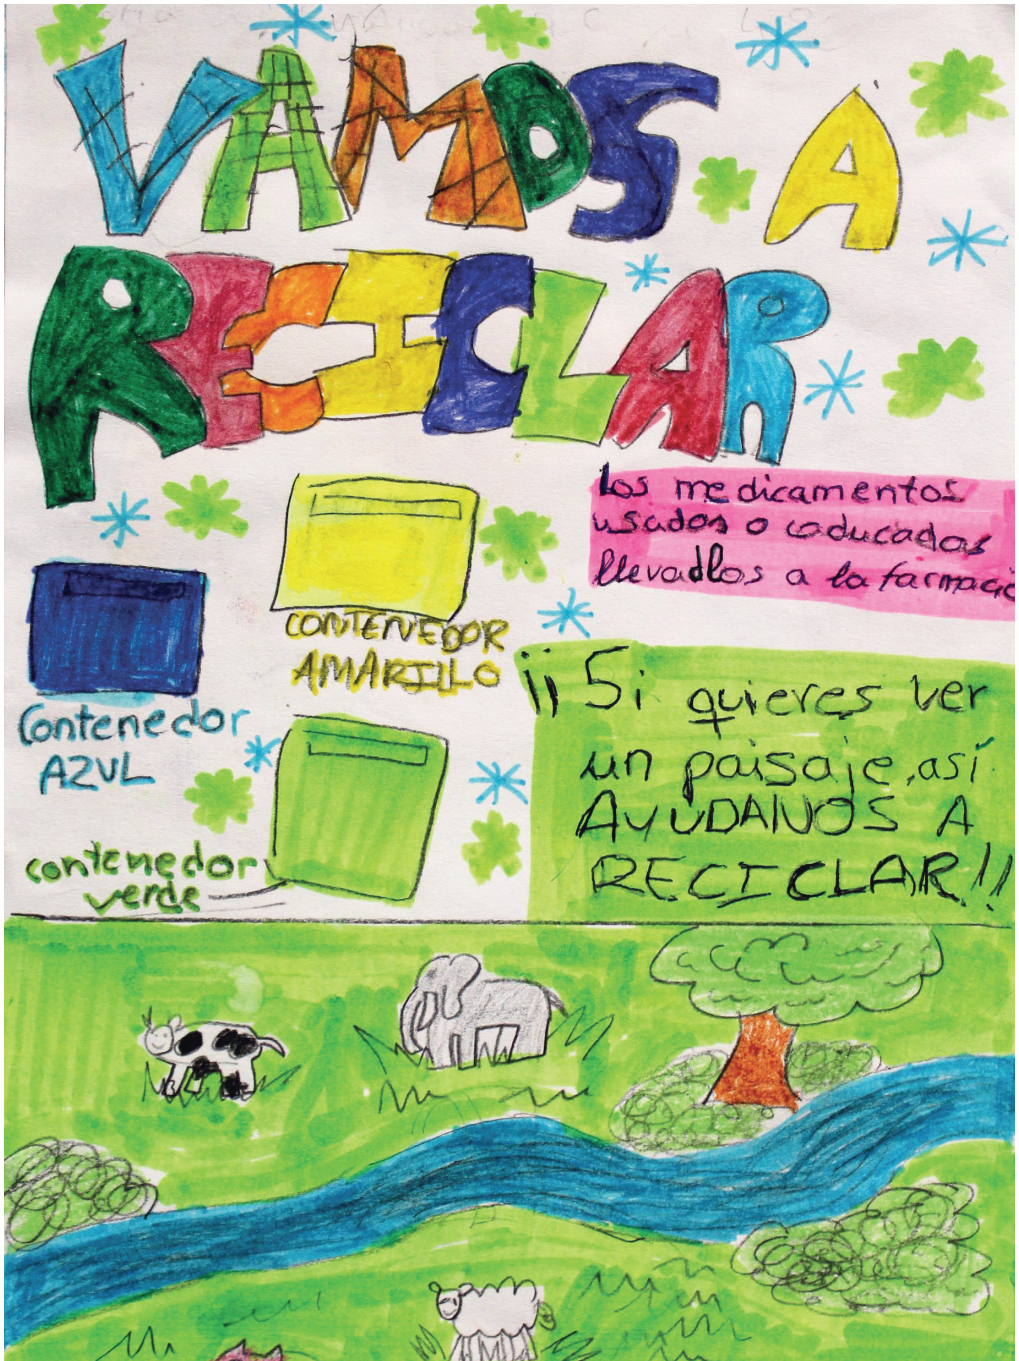 VAMOS A
RECICLAR
Los medicamentos
usados o caducados
llevadlos a la farmacia
CONTENEDOR
AMARILLO
Contenedor
AZUL
contenedor
verde
¡¡Si quieres ver
un paisaje, así
AYUDANOS A
RECICLAR!!